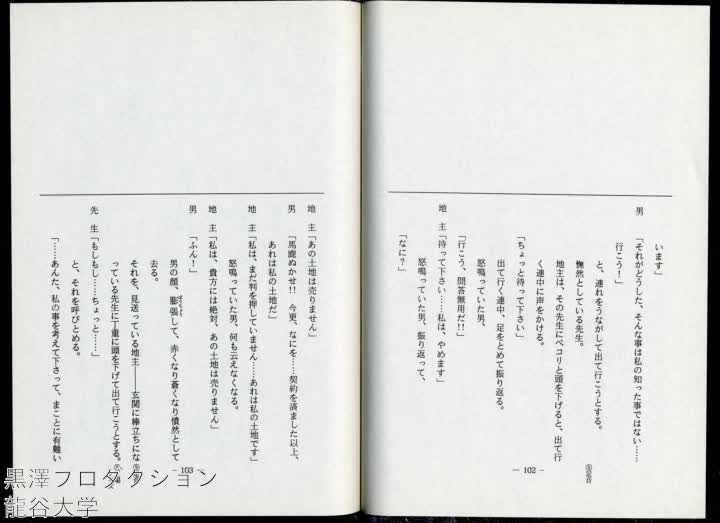 います」
男　「それがどうした、そんな事は私の知った事ではない……
行こう！」
と、連れをうながして出て行こうとする。
憮然としている先生。
地主は、その先生にペコリと頭を下げると、出て行
く連中に声をかける。
「ちょっと待って下さい」
出て行く連中、足をとめて振り返る。
怒鳴っていた男、
「行こう、問答無用だ!!」
地　主「待って下さい……私は、やめます」
怒鳴っていた男、振り返って、
「なに？」
— 102 -
地　主「あの土地は売りません」
男　「馬鹿ぬかせ!!　今更、なにを……契約を済ました以上、
あれは私の土地だ」
地　主「私は、まだ判を押していません……あれは私の土地です」
怒鳴っていた男、何も云えなくなる。
地　主「私は、貴方には絶対、あの土地は売りません」
男　「ふん！」
男の顔、膨張して、赤くなり蒼くなり憤然として
去る。
それを、見送っている地主――玄関に棒立ちにな
っている先生に丁重に頭を下げて出て行こうとする。
先　生「もしもし……ちょっと……」
と、それを呼びとめる。
「……あんた、私の事を考えて下さって、まことに有難い
- 103 —
黒澤プロダクション
龍谷大学